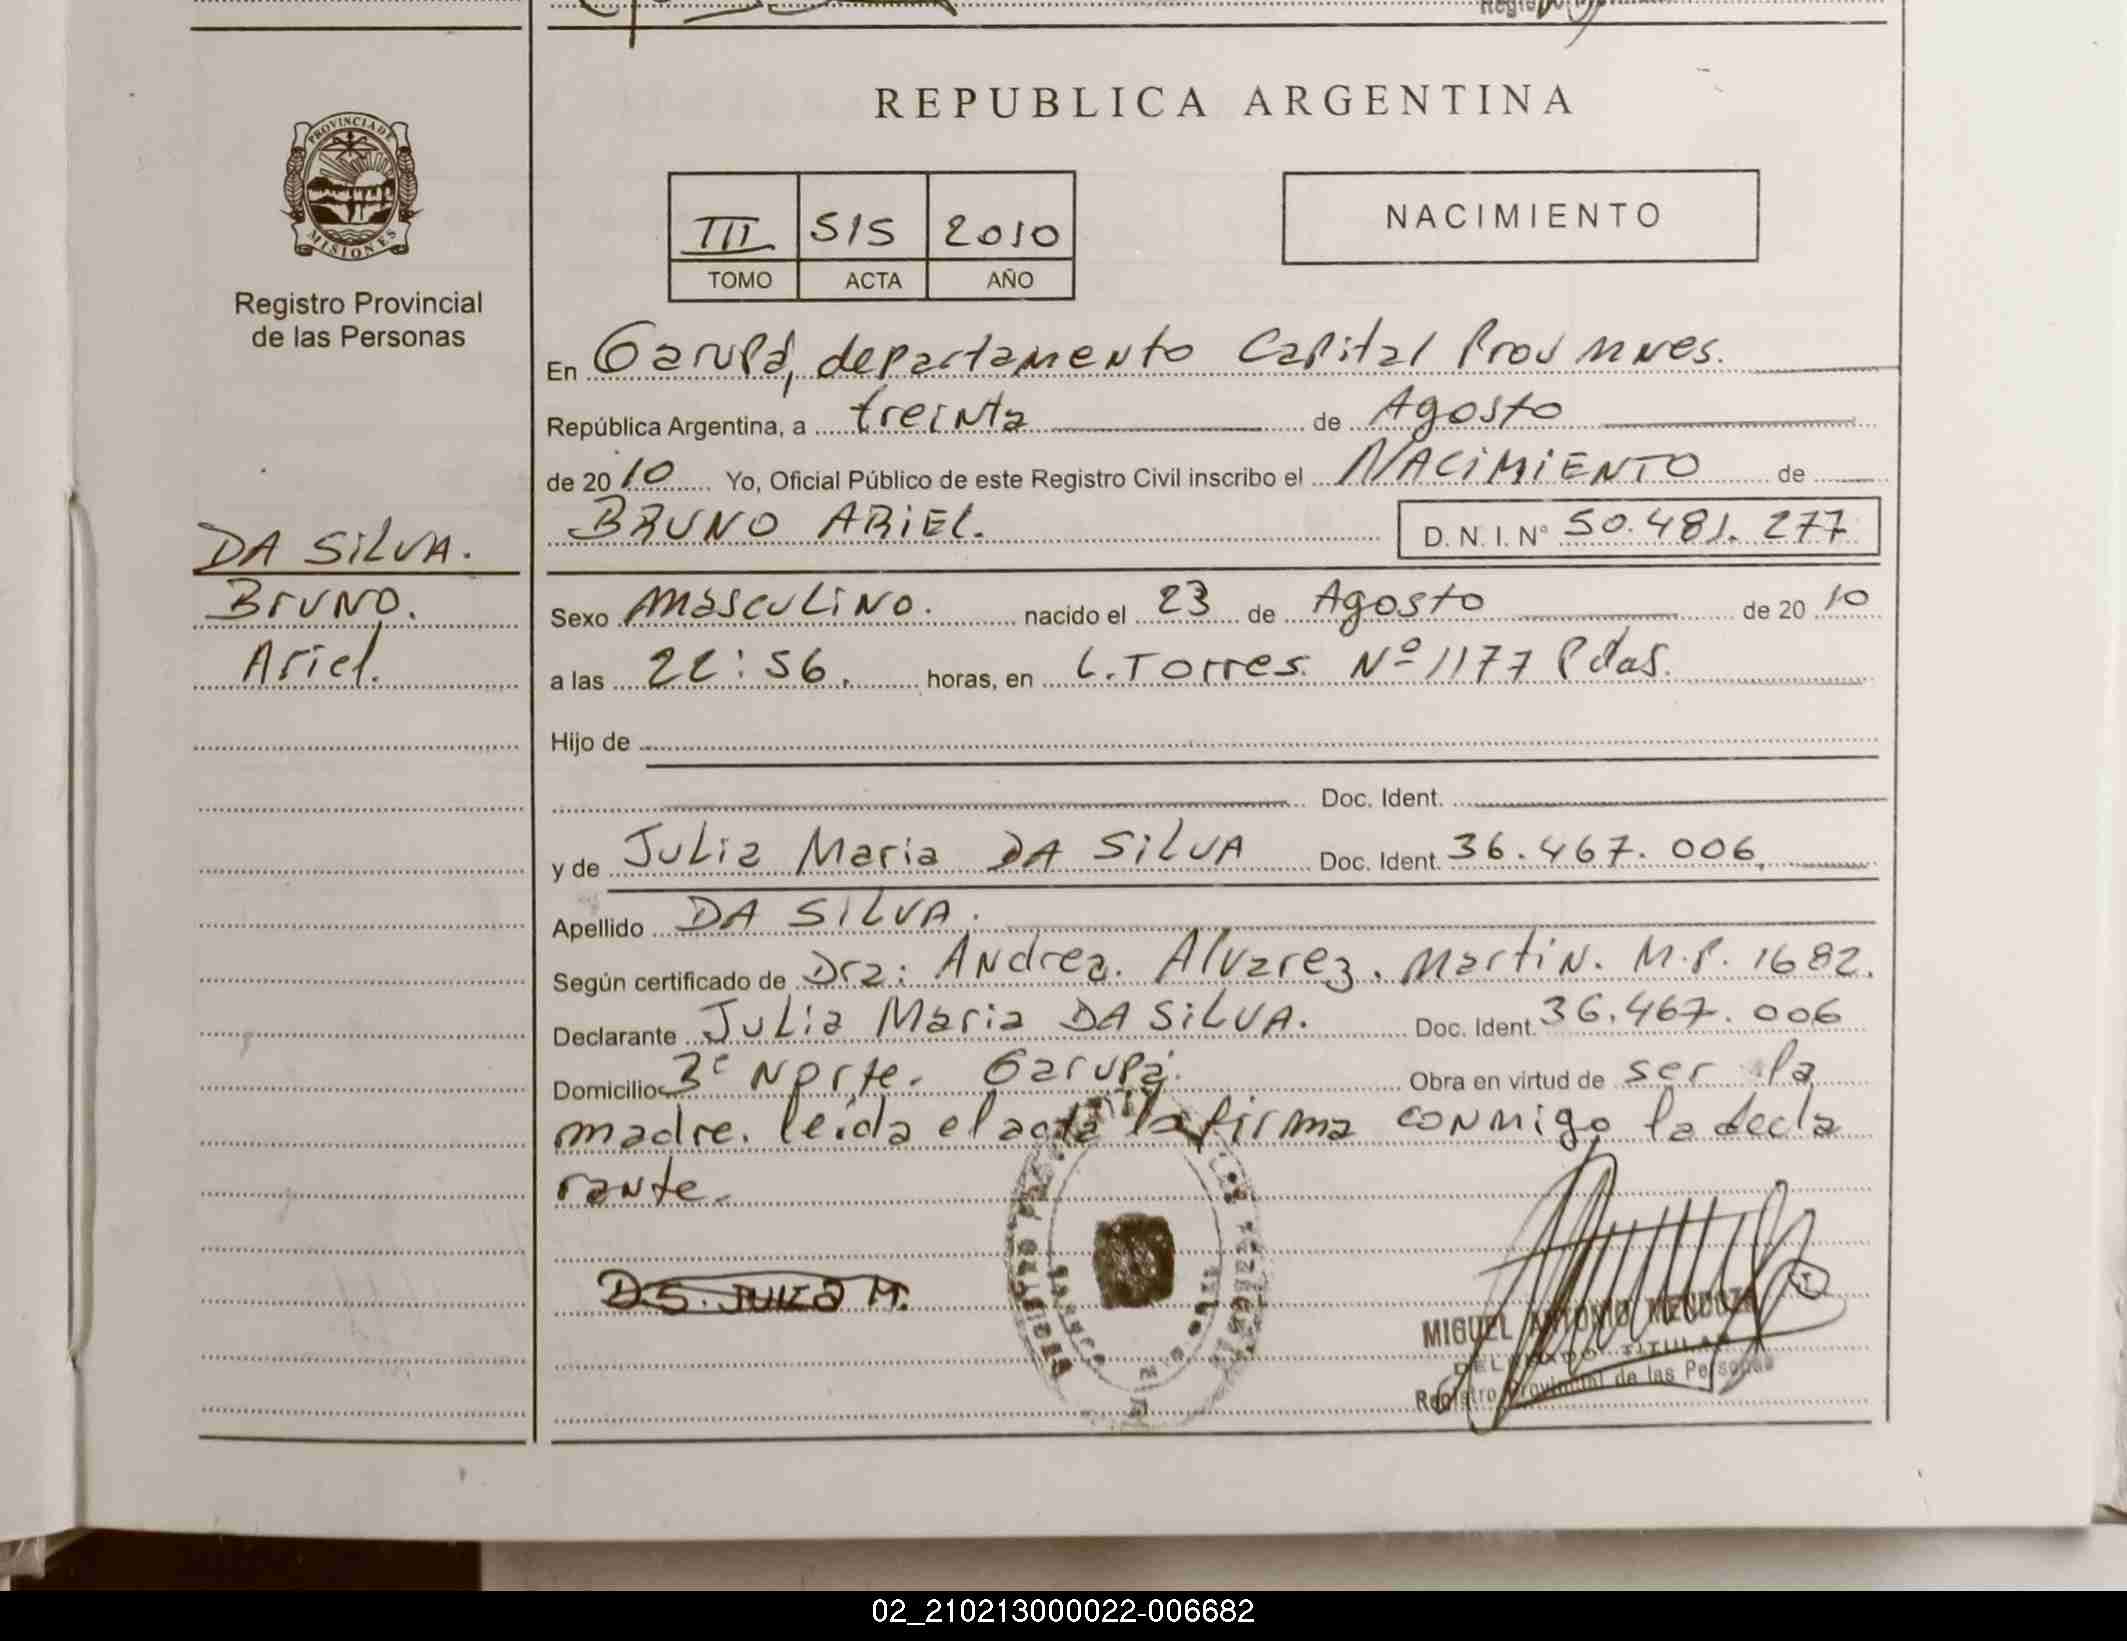 REPUBLICA ARGENTINA
PROVINCIA DE
MISIONES
Registro Provincial
de las Personas
III 515 2010
TOMO ACTA AÑO
NACIMIENTO
En Garupá, departamento Capital Prov Mnes.
República Argentina, a treinta de Agosto
de 2010 Yo, Oficial Público de este Registro Civil inscribo el NACIMIENTO de
BRUNO ARIEL. D. N. I. Nº 50.481.277
DA SILVA.
Bruno.
Ariel.
Sexo masculino. nacido el 23 de Agosto de 2010
a las 22:56. horas, en L. Torres. Nº 1177 Pdas.
Hijo de
Doc. Ident.
y de Julia Maria DA SILVA Doc. Ident. 36.467.006
Apellido DA SILVA.
Según certificado de Dra: Andrea. Alvarez. Martin. M.P. 1682.
Declarante Julia Maria DA SILVA. Doc. Ident. 36.467.006
Domicilio 3º Norte. Garupá. Obra en virtud de ser la
madre. leida el acta la firma conmigo la decla
rante.
D.S. JULIA M.
MIGUEL ANTONIO MENDOZA
DELEGADO TITULAR
Registro Provincial de las Personas
02_210213000022-006682